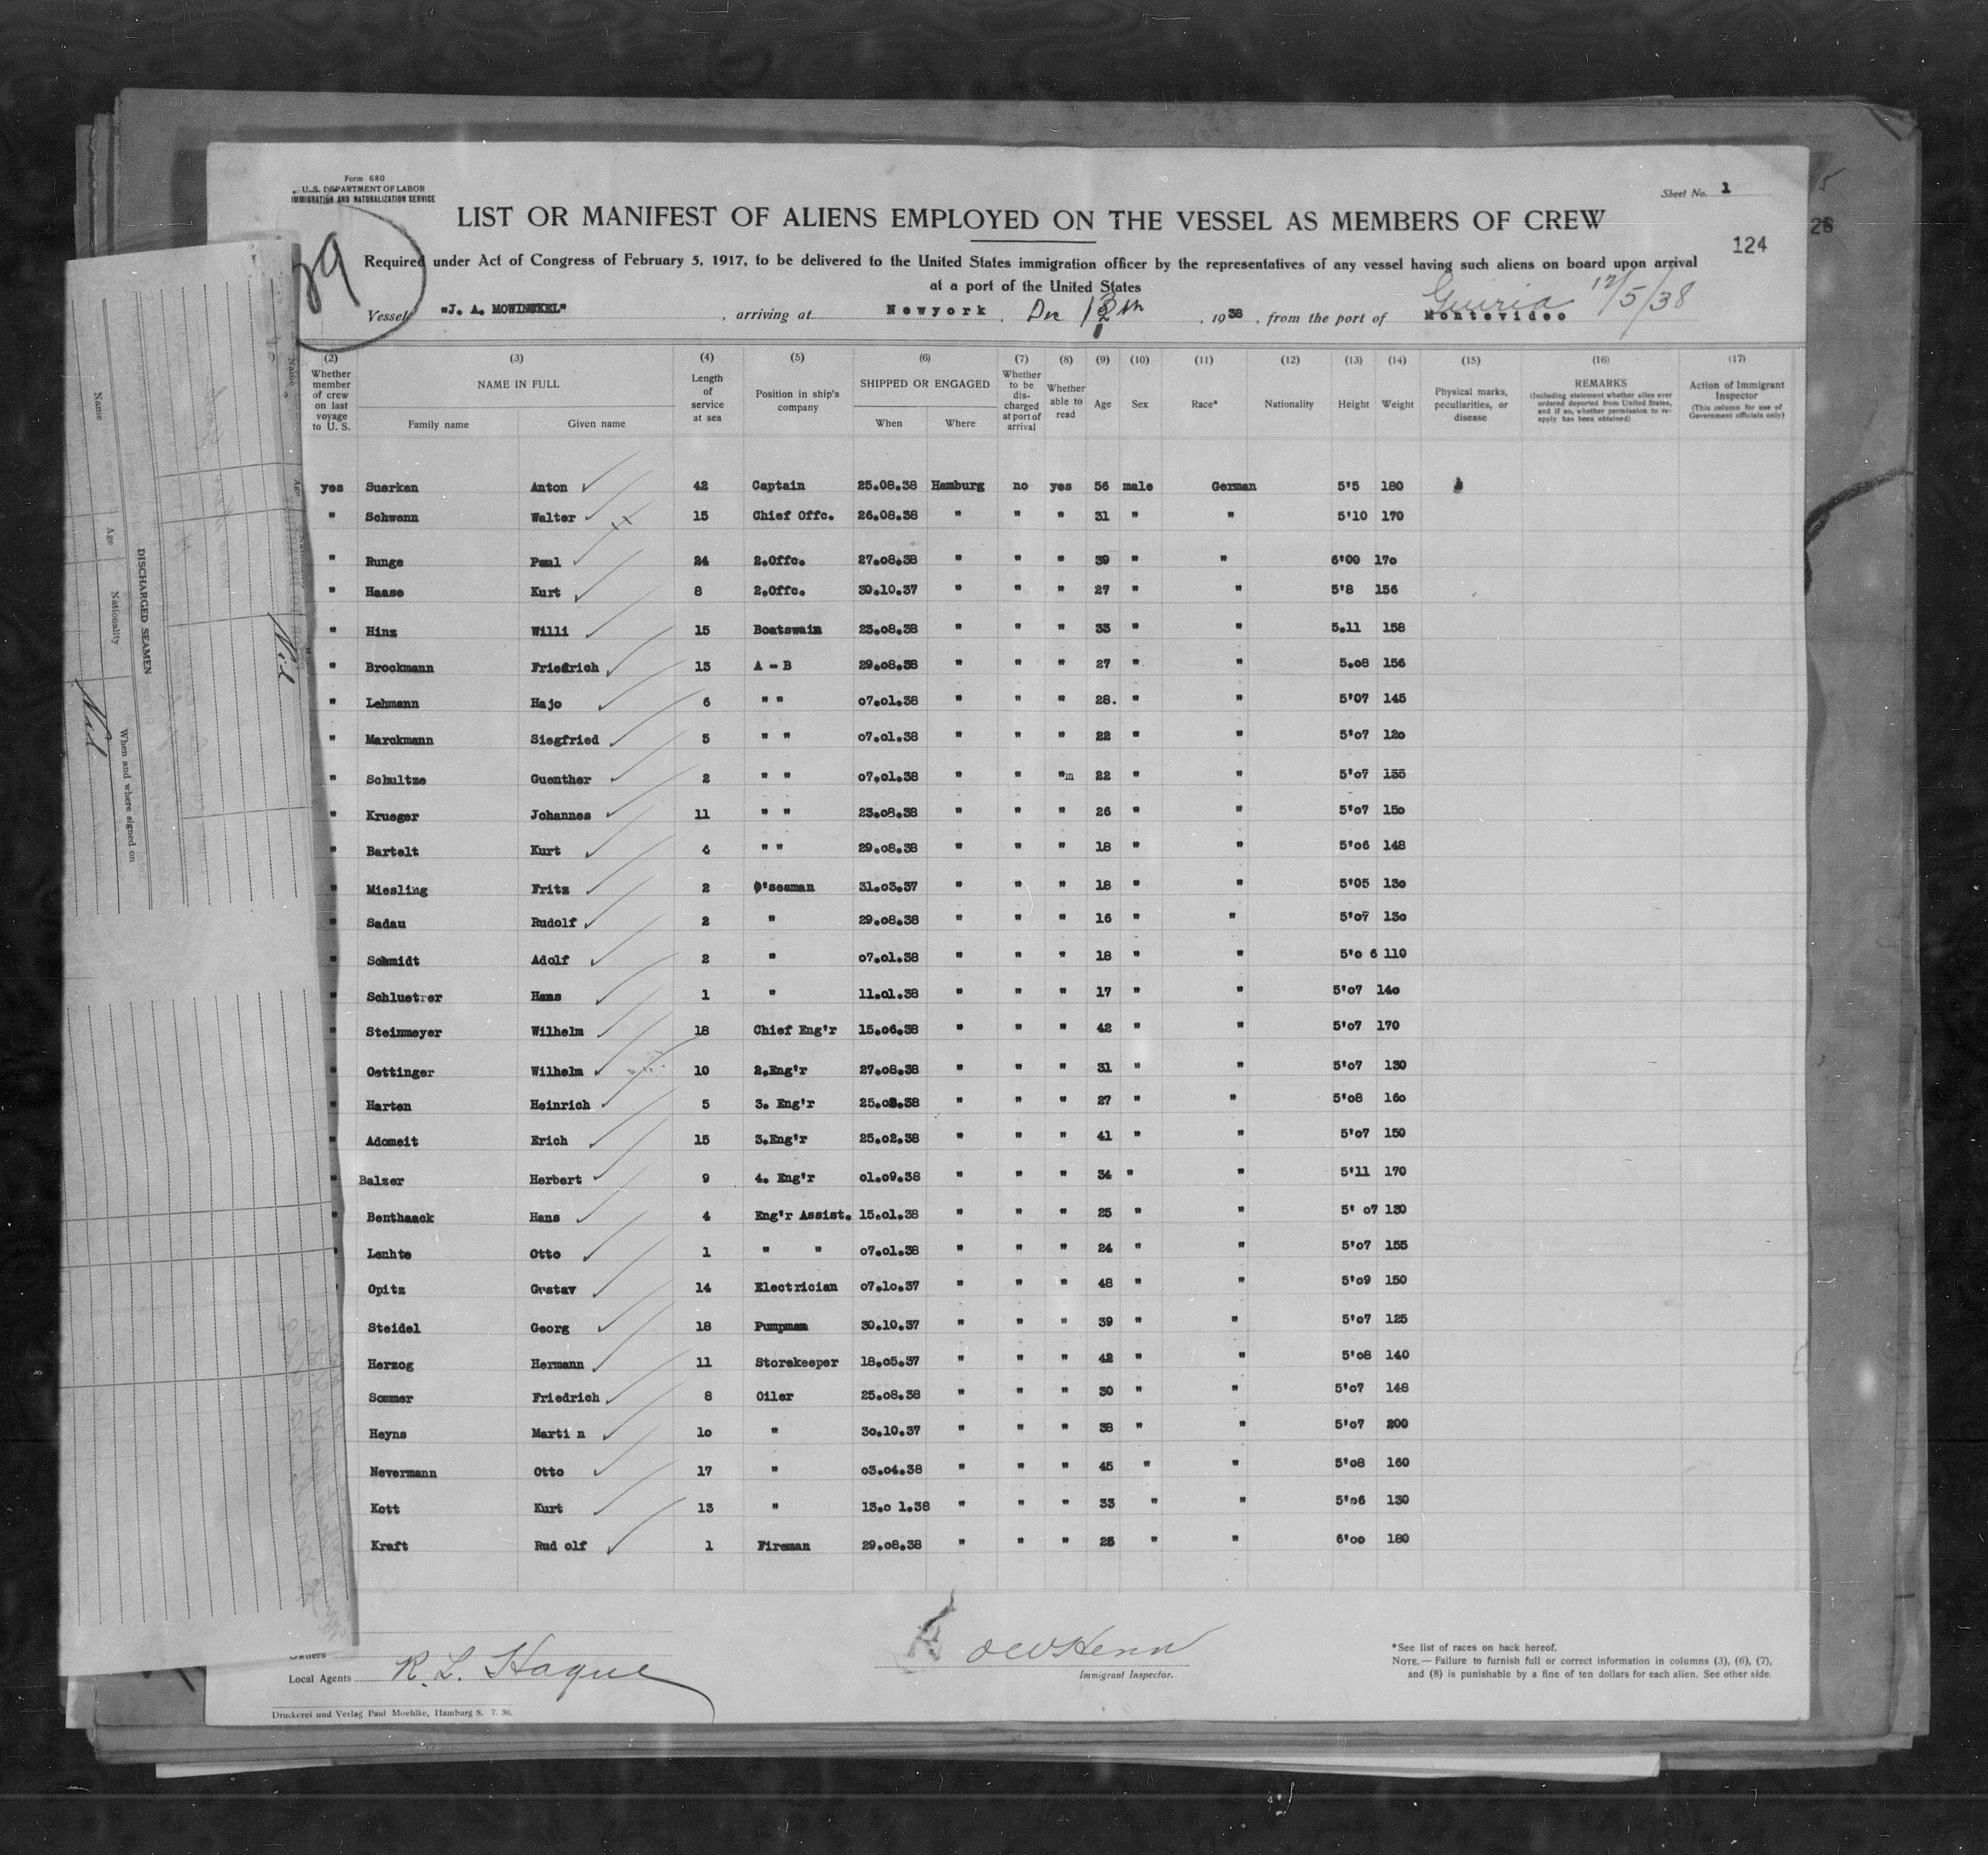 Form 680
U.S. DEPARTMENT OF LABOR
IMMIGRATION AND NATURALIZATION SERVICE
Sheet No. 1
89
LIST OR MANIFEST OF ALIENS EMPLOYED ON THE VESSEL AS MEMBERS OF CREW
124
26
Required under Act of Congress of February 5, 1917, to be delivered to the United States immigration officer by the representatives of any vessel having such aliens on board upon arrival
at a port of the United States
Guiria 12/5/38
Vessel "J. A. MOWINCKEL", arriving at Newyork, Dec 13th, 1938, from the port of Montevideo
(2) (3) (4) (5) (6) (7) (8) (9) (10) (11) (12) (13) (14) (15) (16) (17)
Whether member of crew on last voyage to U. S. NAME IN FULL Family name Given name Length of service at sea Position in ship's company SHIPPED OR ENGAGED When Where Whether to be discharged at port of arrival Whether able to read Age Sex Race* Nationality Height Weight Physical marks, peculiarities, or disease REMARKS (Including statement whether alien ever ordered deported from United States, and if so, whether permission to reapply has been obtained) Action of Immigrant Inspector (This column for use of Government officials only)
yes Suerken Anton 42 Captain 25.08.38 Hamburg no yes 56 male German 5'5 180
" Schwenn Walter 15 Chief Offc. 26.08.38 " " " 31 " " 5'10 170
" Runge Paul 24 2.Offc. 27.08.38 " " " 39 " " 6'00 17o
" Haase Kurt 8 2.Offc. 30.10.37 " " " 27 " " 5'8 156
" Hinz Willi 15 Boatswain 23.08.38 " " " 33 " " 5.11 158
" Brockmann Friedrich 13 A - B 29.08.38 " " " 27 " " 5.08 156
" Lehmann Hajo 6 " " 07.01.38 " " " 28. " " 5'07 145
" Marckmann Siegfried 5 " " 07.01.38 " " " 22 " " 5'07 12o
" Schultze Guenther 2 " " 07.01.38 " " "m 22 " " 5'07 135
" Krueger Johannes 11 " " 23.08.38 " " " 26 " " 5'07 15o
" Bartelt Kurt 4 " " 29.08.38 " " " 18 " " 5'06 148
" Miesling Fritz 2 O'seaman 31.03.37 " " " 18 " " 5'05 13o
" Sadau Rudolf 2 " 29.08.38 " " " 16 " " 5'07 13o
" Schmidt Adolf 2 " 07.01.38 " " " 18 " " 5'o 6 110
" Schluetrer Hans 1 " 11.01.38 " " " 17 " " 5'07 14o
" Steinmeyer Wilhelm 18 Chief Eng'r 15.06.38 " " " 42 " " 5'07 170
" Oettinger Wilhelm 10 2.Eng'r 27.08.38 " " " 31 " " 5'07 130
" Harten Heinrich 5 3. Eng'r 25.08.38 " " " 27 " " 5'08 16o
" Adomeit Erich 15 3.Eng'r 25.02.38 " " " 41 " " 5'07 150
" Balzer Herbert 9 4. Eng'r 01.09.38 " " " 34 " " 5'11 170
" Benthaack Hans 4 Eng'r Assist. 15.01.38 " " " 25 " " 5' 07 130
" Lenhte Otto 1 " " 07.01.38 " " " 24 " " 5'07 155
" Opitz Gustav 14 Electrician 07.10.37 " " " 48 " " 5'09 150
Steidel Georg 18 Pumpman 30.10.37 " " " 39 " " 5'07 125
Herzog Hermann 11 Storekeeper 18.05.37 " " " 42 " " 5'08 140
Sommer Friedrich 8 Oiler 25.08.38 " " " 30 " " 5'07 148
Heyns Marti n 1o " 30.10.37 " " " 38 " " 5'07 200
Nevermann Otto 17 " 03.04.38 " " " 45 " " 5'08 160
Kott Kurt 13 " 13.0 1.38 " " " 33 " " 5'06 130
Kraft Rud olf 1 Fireman 29.08.38 " " " 25 " " 6'00 180
Owners
Local Agents R. L. Hague
Immigrant Inspector.
*See list of races on back hereof.
NOTE.—Failure to furnish full or correct information in columns (3), (6), (7),
and (8) is punishable by a fine of ten dollars for each alien. See other side.
Druckerei und Verlag Paul Moehlke, Hamburg 8. 7. 36.
DISCHARGED SEAMEN
Name Age Nationality When and where signed on
Nil
Name Age
Nil